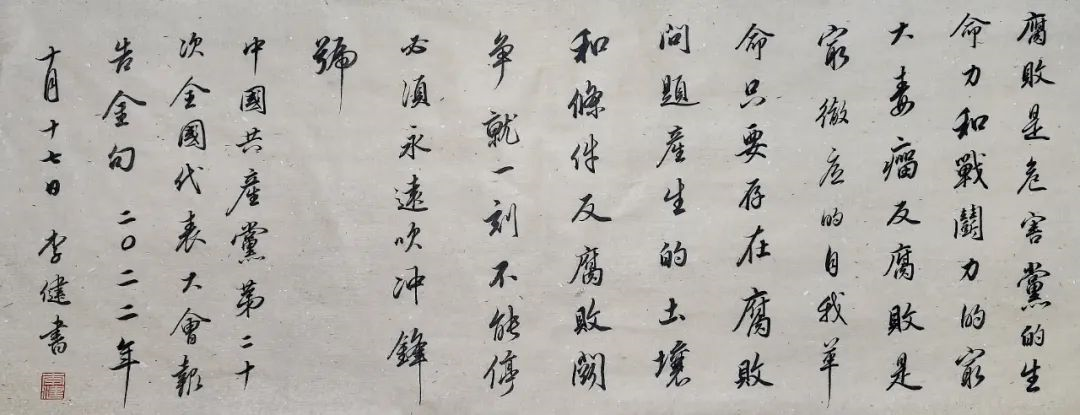 腐敗是危害黨的生
命力和戰鬪力的最
大毒瘤反腐敗是
最徹底的自我革
命只要存在腐敗
問題産生的土壤
和條件反腐敗鬪
争就一刻不能停
必須永遠吹冲鋒
號
中國共産黨第二十
次全國代表大會報
告金句 二〇二二年
十月十七日 李健書